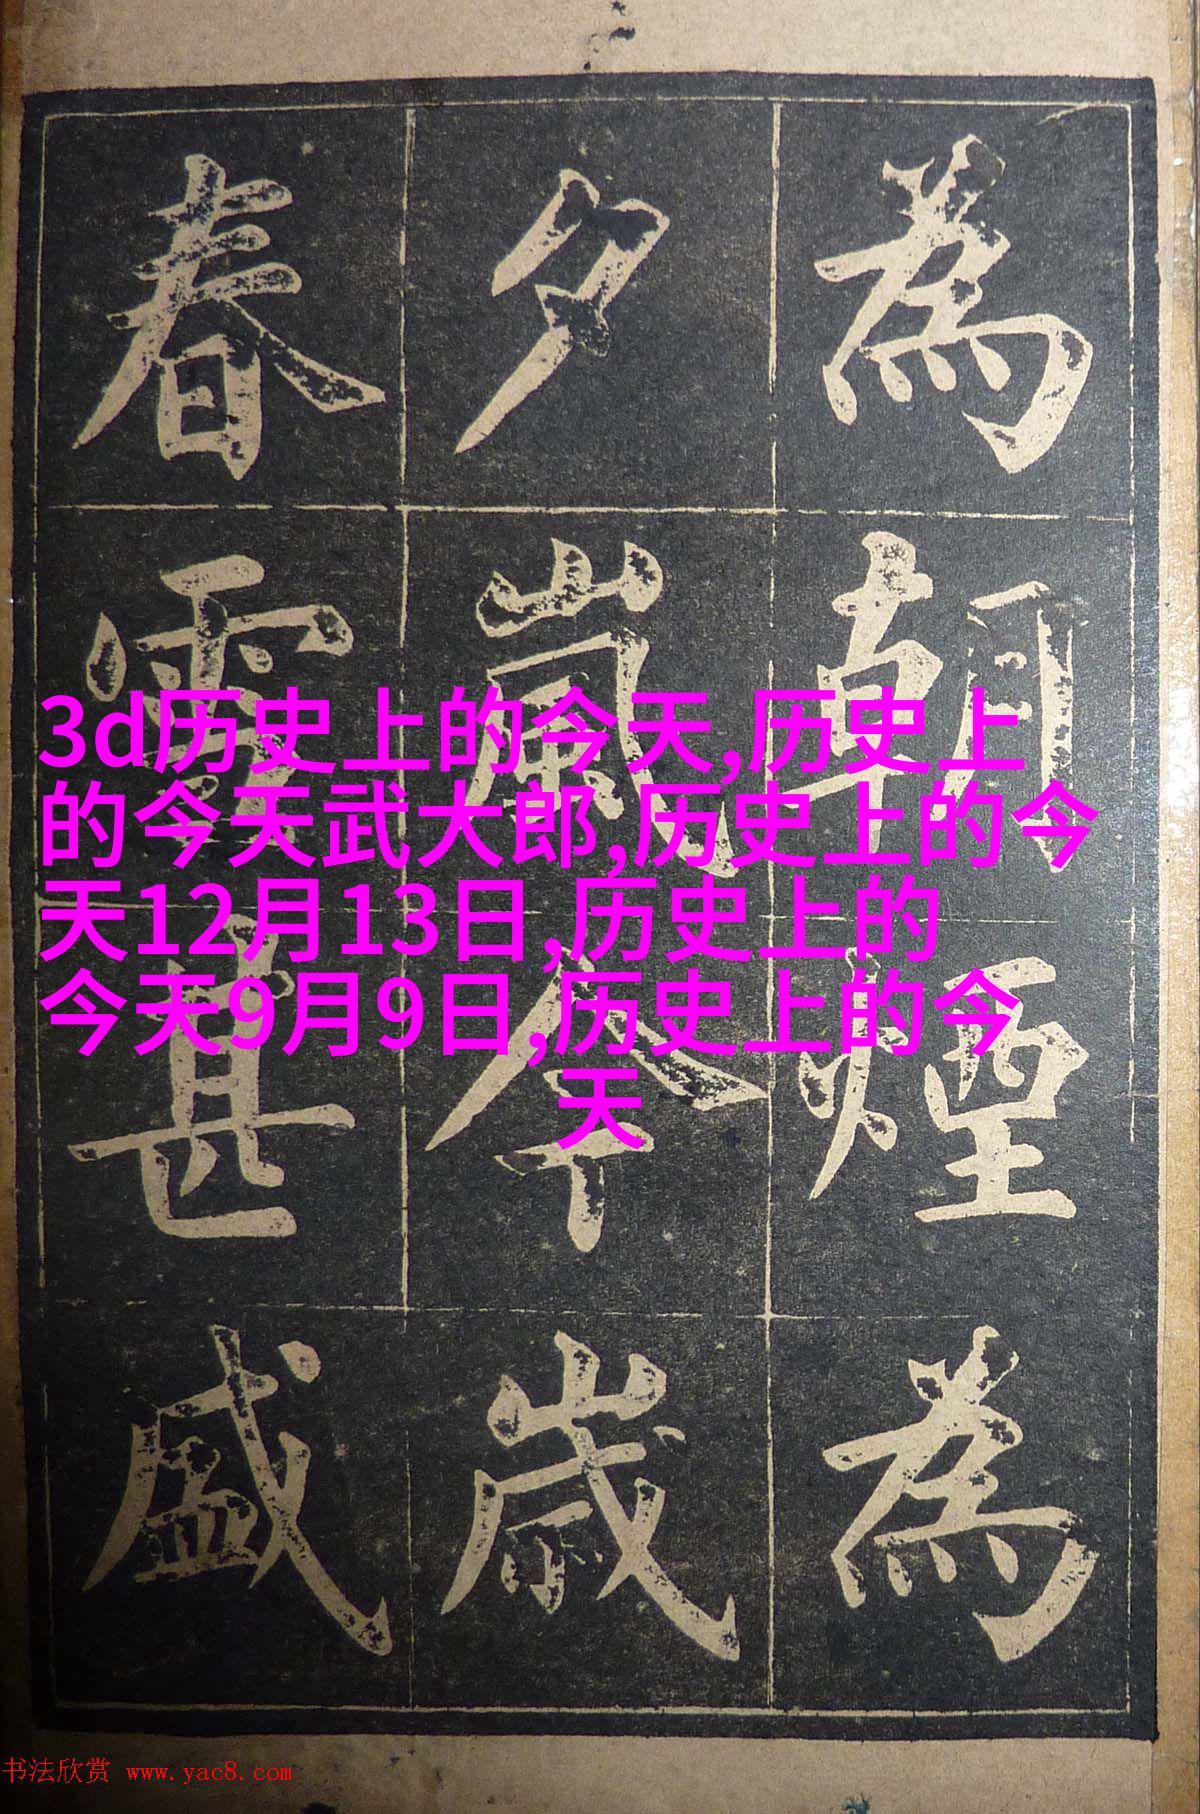 為朝煙為
夕嵐今歲
春雪甚盛
3d历史上的今天,历史上
的今天武大郎,历史上的今
天12月13日,历史上的
今天9月9日,历史上的今
天
书法欣赏 www.yac8.com